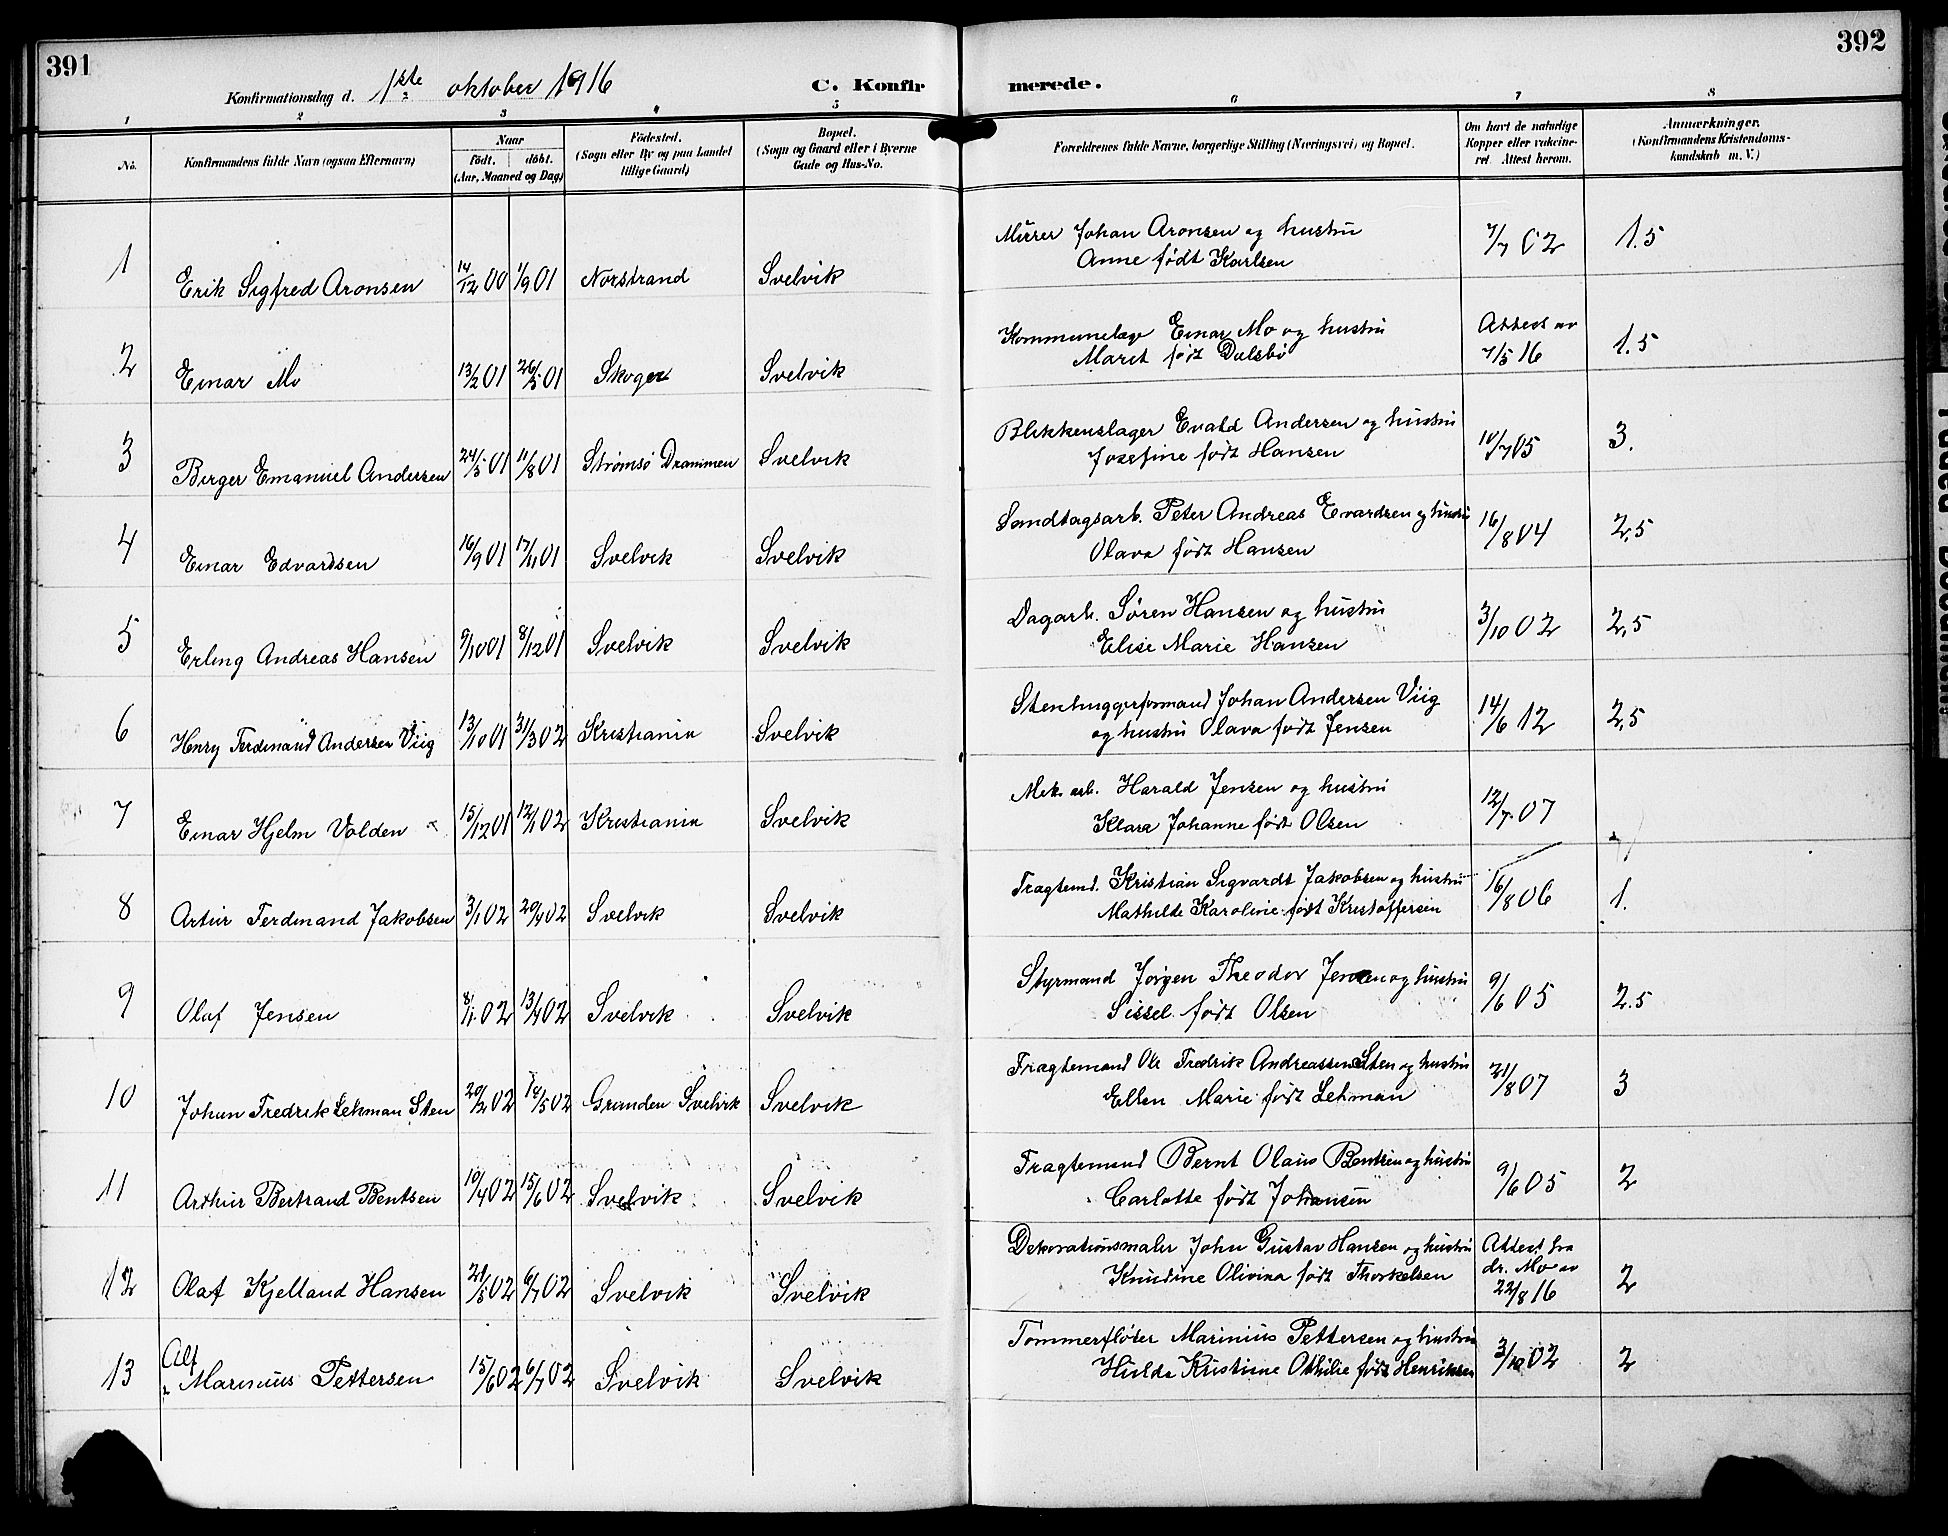 391
392
Konfirmationsdag d. 1ste oktober 1916
C. Konfirmerede.
1 2 3 4 5 6 7 8
No.
Konfirmandens fulde Navn (ogsaa Efternavn)
Naar
födt. döbt.
(Aar, Maaned og Dag)
Födested.
(Sogn eller By og paa Landet
tillige Gaard)
Bopæl.
(Sogn og Gaard eller i Byerne
Gade og Hus-No.
Forældrenes fulde Navne, borgerlige Stilling (Næringsvei) og Bopæl.
Om havt de naturlige
Kopper eller vakcine-
ret. Attest herom.
Anmærkninger.
(Konfirmandens Kristendoms-
kundskab m. V.)
1 Erik Sigfred Aronsen 14/12 00 1/9 01 Norstrand Svelvik
Murer Johan Aronsen og hustru
Anne født Karlsen
7/7 02 1.5
2 Einar Mo 13/2 01 26/5 01 Skoger Svelvik
Kommunelæge Einar Mo og hustru
Maret født Dalsbö
Attest av
7/5 16 1.5
3 Birger Emanuel Andersen 24/5 01 11/8 01 Strömsö Drammen Svelvik
Blikkenslager Evald Andersen og hustru
Josefine født Hansen
10/7 05 3.
4 Einar Edvardsen 16/9 01 17/11 01 Svelvik Svelvik
Sandtagsarb. Peter Andreas Evardsen og hustru
Olava født Hansen
16/8 04 2,5
5 Erling Andreas Hansen 9/10 01 8/12 01 Svelvik Svelvik
Dagarb. Søren Hansen og hustru
Elise Marie Hansen
3/10 02 2,5
6 Henry Ferdinand Andersen Viig 13/10 01 31/3 02 Kristiania Svelvik
Stenhuggerformand Johan Andersen Viig
og hustru Olava født Jensen
14/6 12 2,5
7 Einar Hjelm Volden 15/12 01 12/1 02 Kristiania Svelvik
Mek. arb. Harald Jensen og hustru
Klara Johanne født Olsen
12/7 07
8 Artur Ferdinand Jakobsen 3/1 02 20/4 02 Svelvik Svelvik
Fragtemd. Kristian Sigvardt Jakobsen og hustru
Mathilde Karoline født Kristoffersen
16/8 06 1.
9 Olaf Jensen 8/1 02 13/4 02 Svelvik Svelvik
Styrmand Jørgen Theodor Jensen og hustru
Sissel født Olsen
9/6 05 2.5
10 Johan Fredrik Lehman Sten 20/2 02 14/5 02 Granden Svelvik Svelvik
Fragtemand Ole Fredrik Andreassen Sten og hustru
Ellen Marie født Lehman
21/8 07 3
11 Arthur Bertrand Bentsen 10/4 02 15/6 02 Svelvik Svelvik
Fragtemand Bernt Olaus Bentsen og hustru
Carlotte født Johansen
9/6 05 2
12 Olaf Kjelland Hansen 21/5 02 6/7 02 Svelvik Svelvik
Dekorationsmaler John Gustav Hansen og hustru
Knudine Olivina født Thorkelsen
Attest fra
dr. Mo av
22/8 16 2
13 Alf
Marinius Pettersen 15/6 02 6/7 02 Svelvik Svelvik
Tømmerfløter Marinius Pettersen og hustru
Hulda Kristine Othilie født Henriksen
3/10 02 2